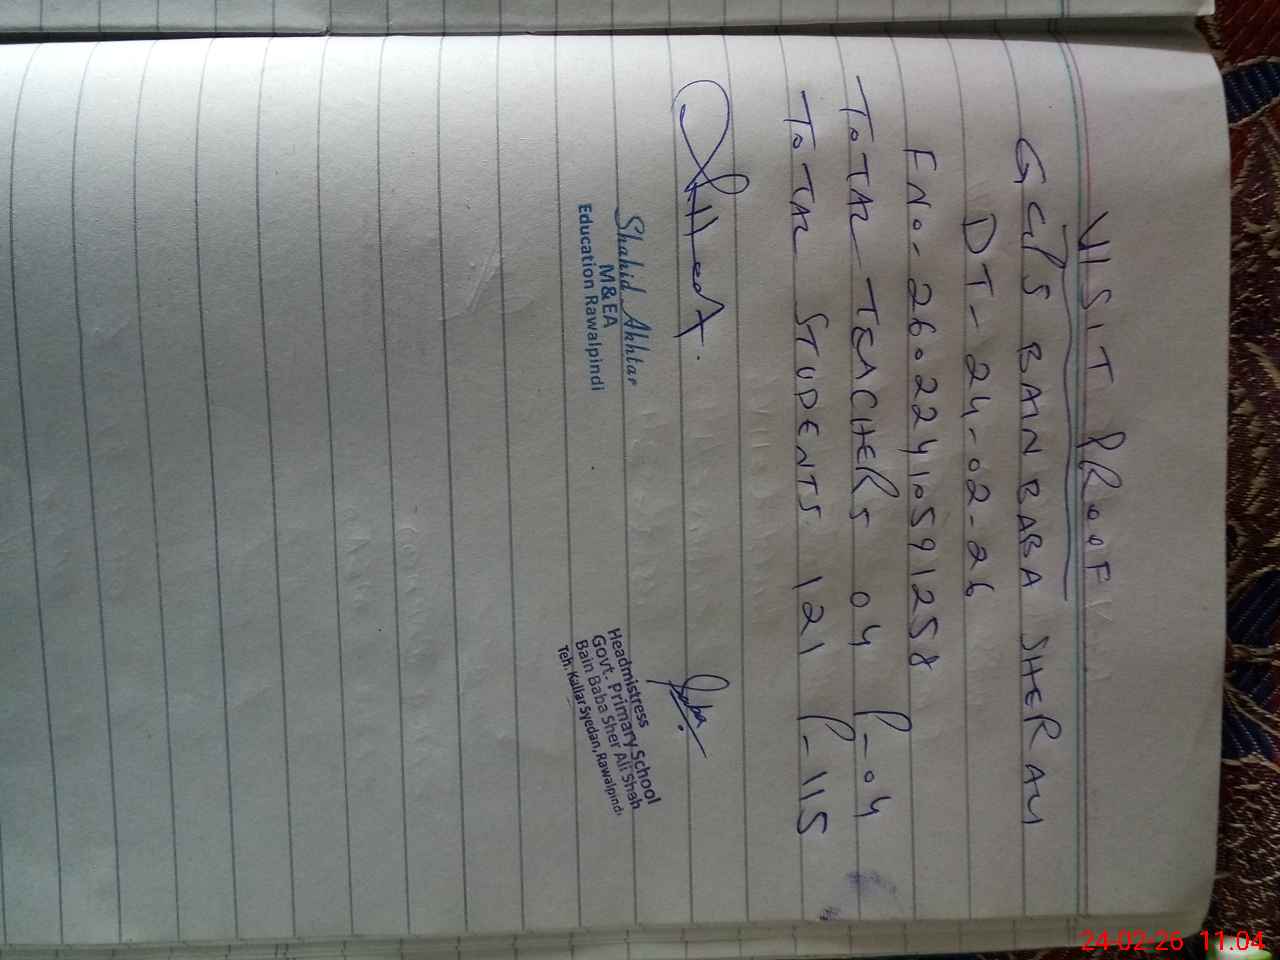 VISIT PROOF
GGPS BAIN BABA SHER ALI
DT- 24-02-26
ENo- 260222410591258
TOTAL TEACHERS 04 P-04
TOTAL STUDENTS 121 P-115
Shahid Akhtar
M&EA
Education Rawalpindi
Headmistress
Govt. Primary School
Bain Baba Sher Ali Shah
Teh. Kallar Syedan, Rawalpindi
24-02-26 11.04